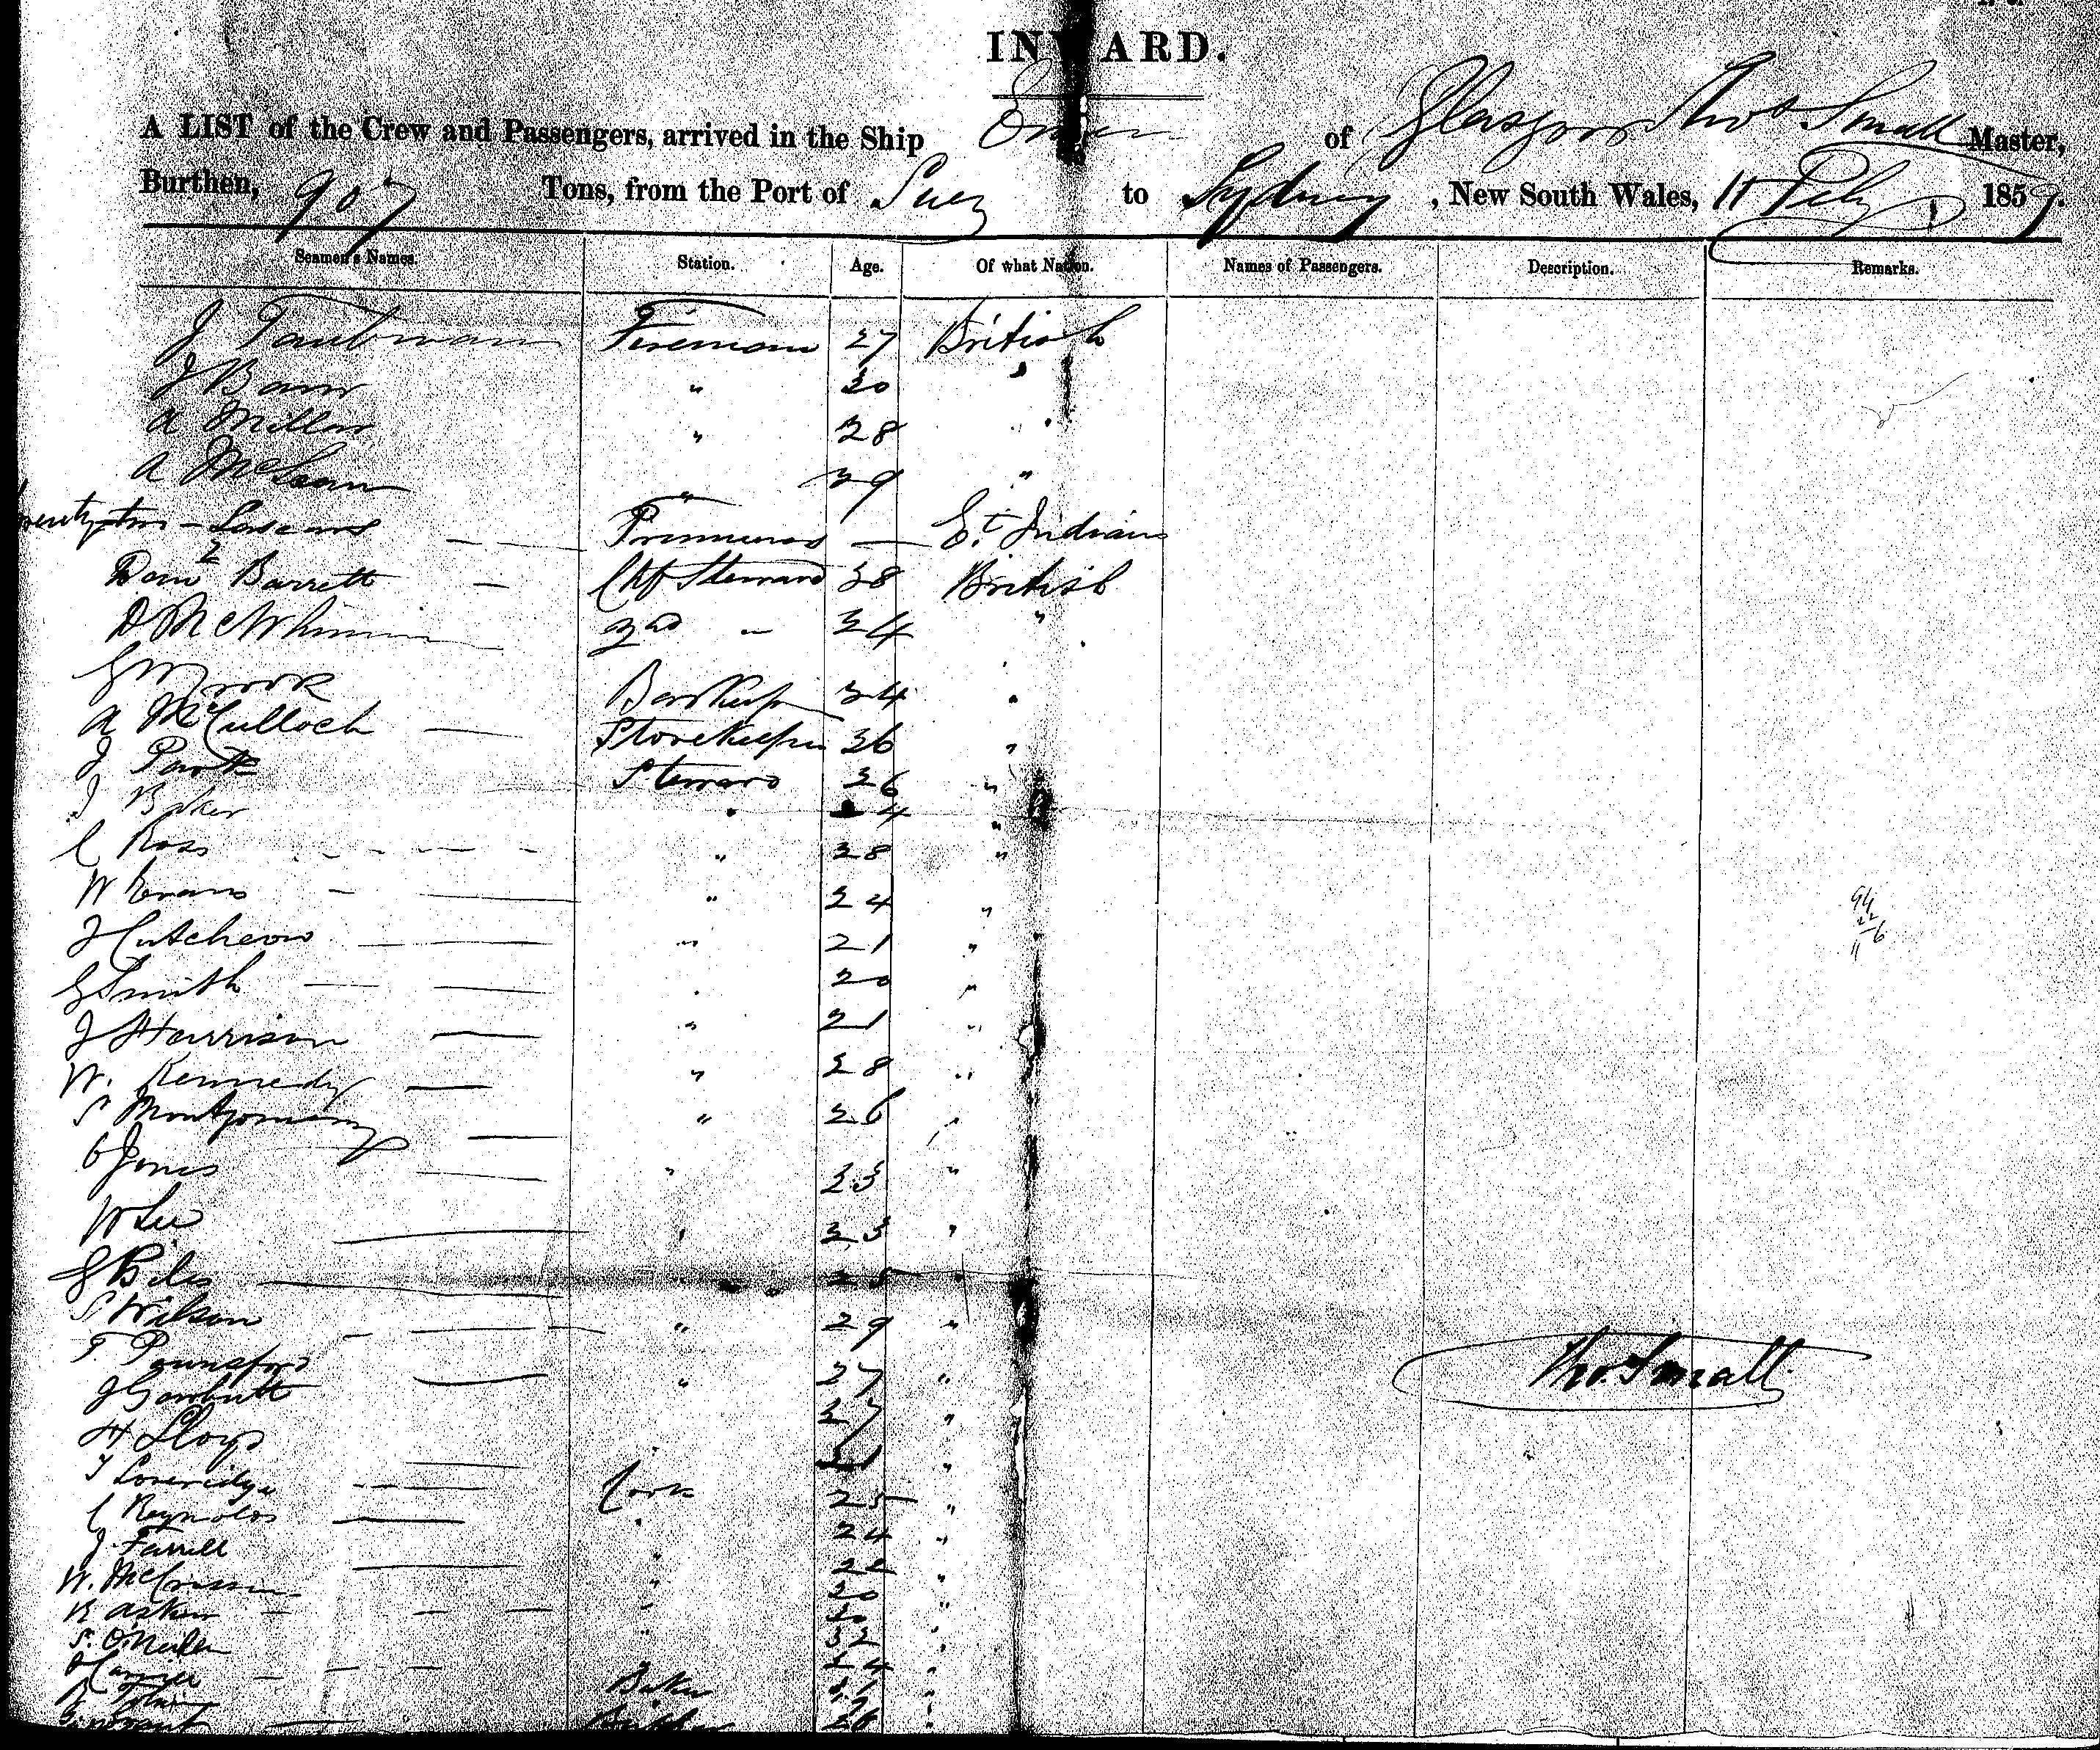 INWARD.
A LIST of the Crew and Passengers, arrived in the Ship of Glasgow Thos Small Master,
Burthen, 907 Tons, from the Port of Suez to Sydney, New South Wales, 11 Feby 1859.
Seamen's Names. Station. Age. Of what Nation. Names of Passengers. Description. Remarks.
J Taubman Fireman 27 British
J Barr " 30 "
A Millar " 28 "
A McLean " 39 "
Lascars Et. Indian
Barrett Chf Steward 38 British
D 2nd " 34 "
34 "
A McCulloch Storekeeper 36 "
J Park Steward 36 "
J Baker " "
C Ross " 28 "
W Evans " 24 "
J Hutcheon " 21 "
G Smith " 20 "
J Harrison " 21 "
W. Kennedy " 28 "
S Montgomery " 26 "
Jones " 23 "
W Lee " 23 "
G Biles " 25 "
S Wilson " 29 "
T. Pounsford " 27 "
J Garbutt 27 "
H Lloyd " "
T Loveridge Cook 25 "
C Reynolds " 24 "
J. Farrell " 22 "
W. " 20 "
R Askew " "
S. O'Neile " 32 "
24 "
Baker "
94
22
116
Thos Small